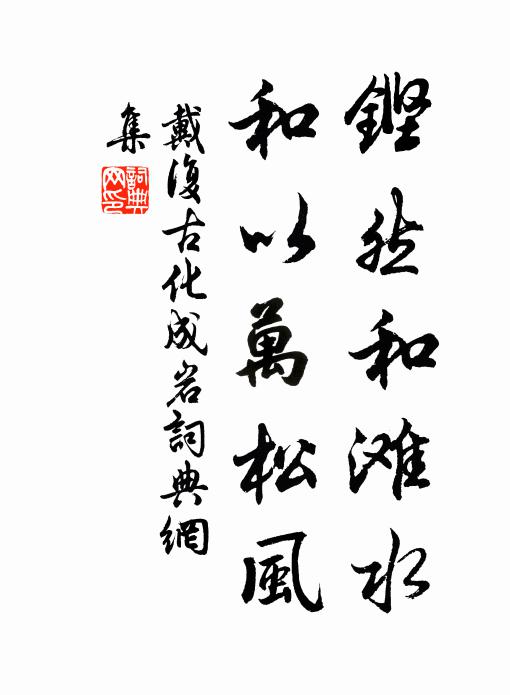 鏗然和滩水
和以萬松風
戴復古化成岩詞典網
集
詞典
网印